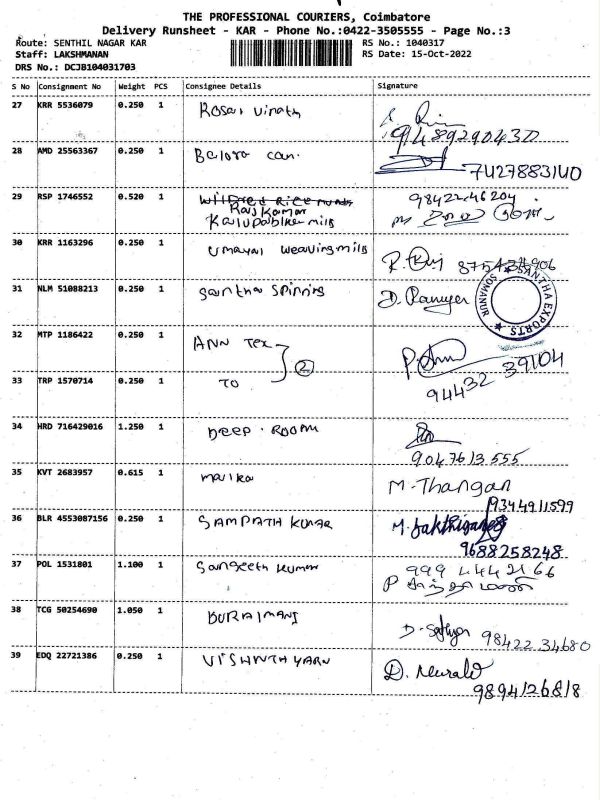 THE PROFESSIONAL COURIERS, Coimbatore
Delivery Runsheet - KAR - Phone No.:0422-3505555 - Page No.:3
Route: SENTHIL NAGAR KAR
RS No.: 1040317
Staff: LAKSHMANAN
RS Date: 15-Oct-2022
DRS No.: DCJB104031703
S No Consignment No Weight PCS Consignee Details Signature
27 KRR 5536079 0.250 1
9489290430
28 AMD 25563367 0.250 1
7427883140
29 RSP 1746552 0.520 1 Rajkumar
9842246204
30 KRR 1163296 0.250 1 Umayal weaving mills
31 NLM 51088213 0.250 1 Santha Spinning
SANTHA EXPORTS
SOMANUR
32 MTP 1186422 0.250 1 ANN Tex
2
94432 39104
33 TRP 1570714 0.250 1 TO
34 HRD 716429016 1.250 1 DEEP ROOM
9047613555
35 KVT 2683957 0.615 1 marika M. Thangan
9344911599
36 BLR 4553087156 0.250 1 SAMPATH KUMAR M. Sakthiganesh
9688258248
37 POL 1531801 1.100 1 Sangeeth kumar 999 444 2166
38 TCG 50254690 1.050 1 DURAIMANI D. Sathya 98422 34680
39 EDQ 22721386 0.250 1 VISHNTH YARN
9894126818